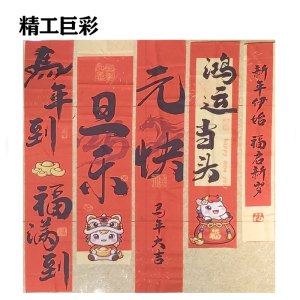 精工巨彩
馬年到 福滿到
旦乐
元快
马年大吉
鸿运当头
新年伊始 福启新岁